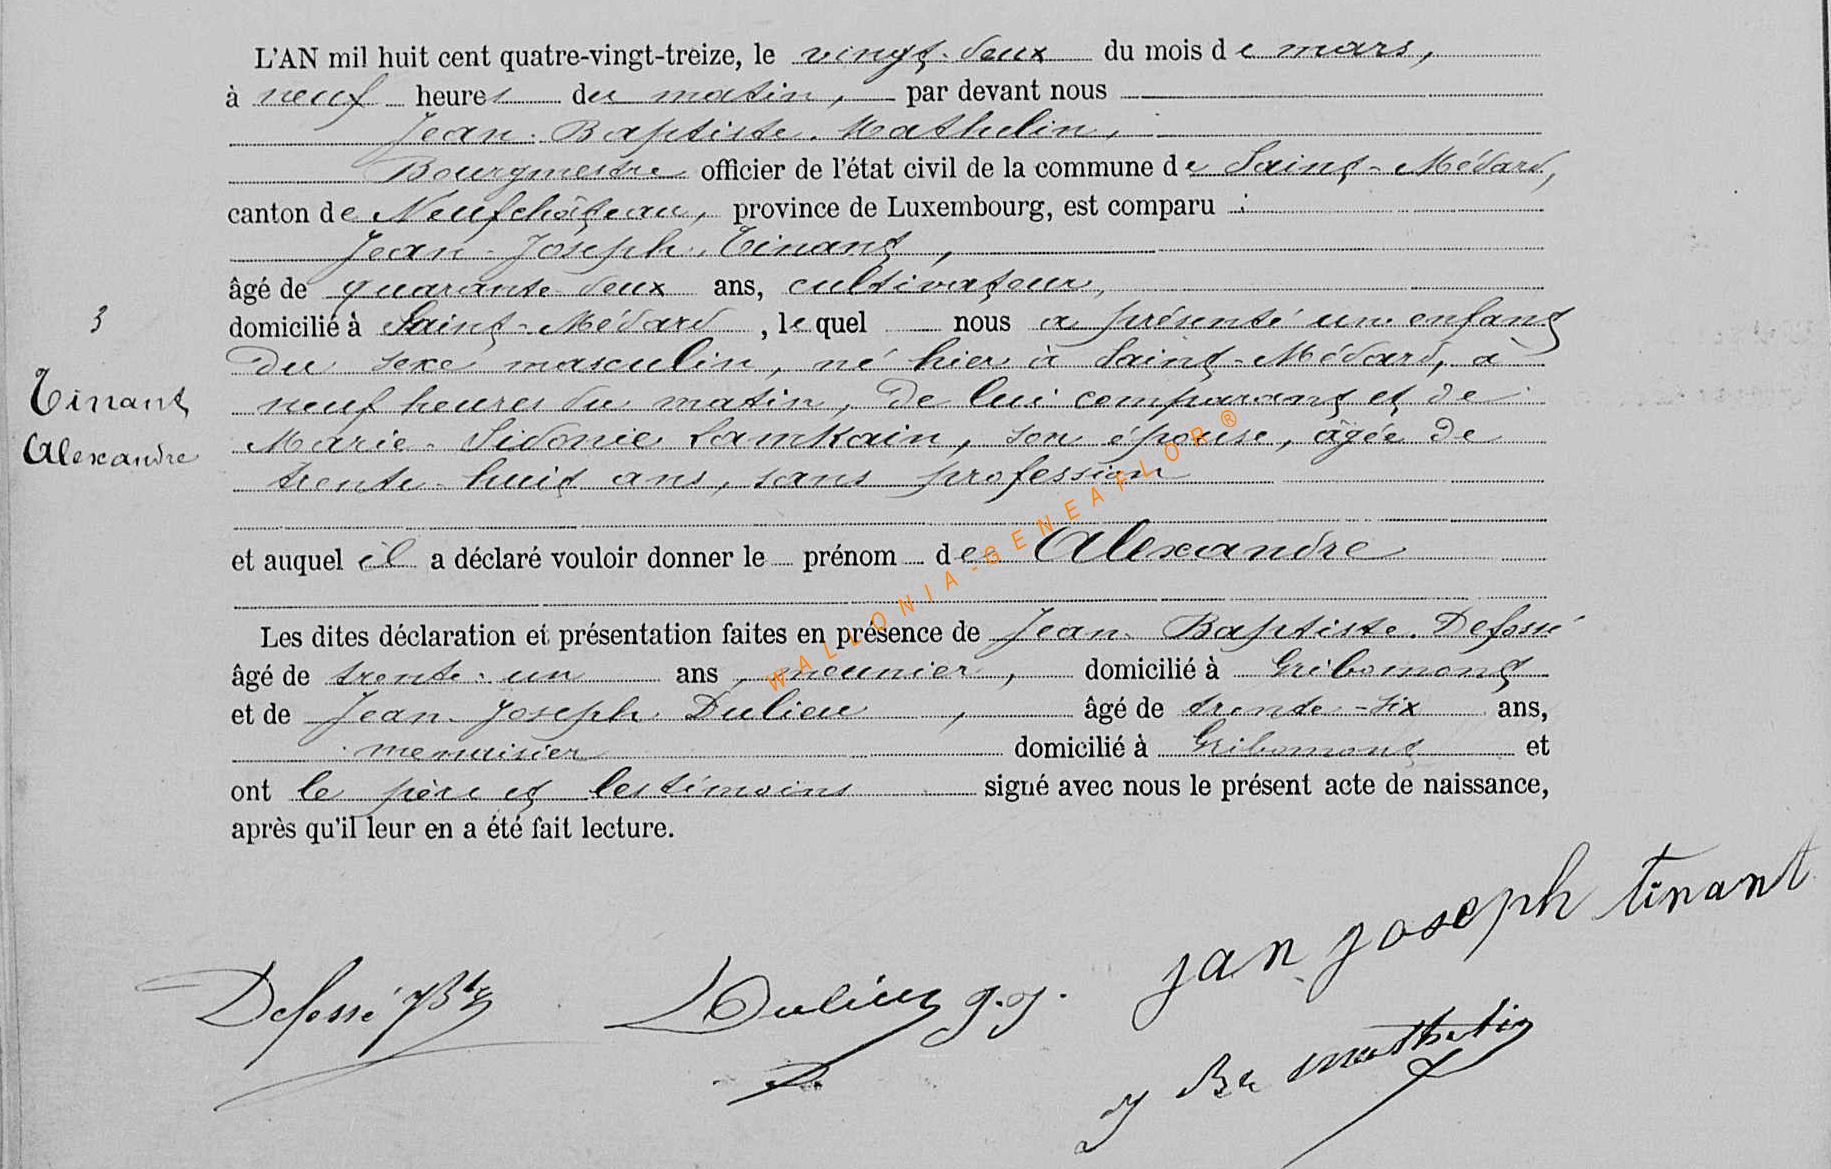 L'AN mil huit cent quatre-vingt-treize, le vingt-deux du mois de mars,
à neuf heures du matin, par devant nous
Jean-Baptiste Mathelin,
Bourgmestre officier de l'état civil de la commune de Saint-Médard,
canton de Neufchâteau, province de Luxembourg, est comparu :
Jean-Joseph Tinant,
âgé de quarante-deux ans, cultivateur,
domicilié à Saint-Médard, lequel nous a présenté un enfant
du sexe masculin, né hier à Saint-Médard, à
neuf heures du matin, de lui comparant et de
Marie-Sidonie Lamkain, son épouse, âgée de
trente-huit ans, sans profession
et auquel il a déclaré vouloir donner le prénom de Alexandre
Les dites déclaration et présentation faites en présence de Jean-Baptiste Defossé
âgé de trente-un ans, meunier, domicilié à Gribomont
et de Jean-Joseph Dulieu, âgé de trente-six ans,
menuisier domicilié à Gribomont et
ont le père et les témoins signé avec nous le présent acte de naissance,
après qu'il leur en a été fait lecture.
3
Tinant
Alexandre
WALLONIA-GENEAFLOR®
jan joseph tinant
Defossé JBte
Dulieu J.J.
J Bte Mathelin